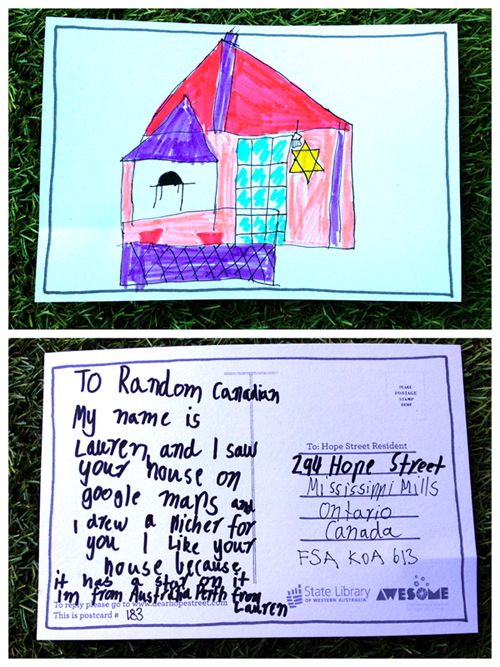 TO Random Canadian
My name is
Lauren and I saw
your house on
google maps and
I drew a picher for
you I Like your
house because
it has a star on it
im from Australia Perth from
Lauren
To reply please go to www.dearhopestreet.com
This is postcard # 183
PLACE
POSTAGE
STAMP
HERE
To: Hope Street Resident
294 Hope Street
Mississippi Mills
Ontario
Canada
FSA KOA 613
State Library
OF WESTERN AUSTRALIA
AWESOME